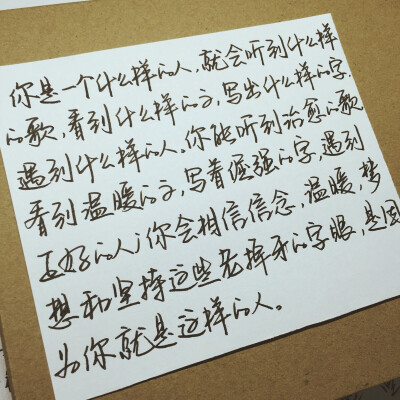 你是一个什么样的人，就会听到什么样
的歌，看到什么样的文，写出什么样的字，
遇到什么样的人。你能听到治愈的歌
看到温暖的文，写着倔强的字，遇到
正好的人，你会相信信念，温暖，梦
想和坚持这些老掉牙的字眼，是因
为你就是这样的人。